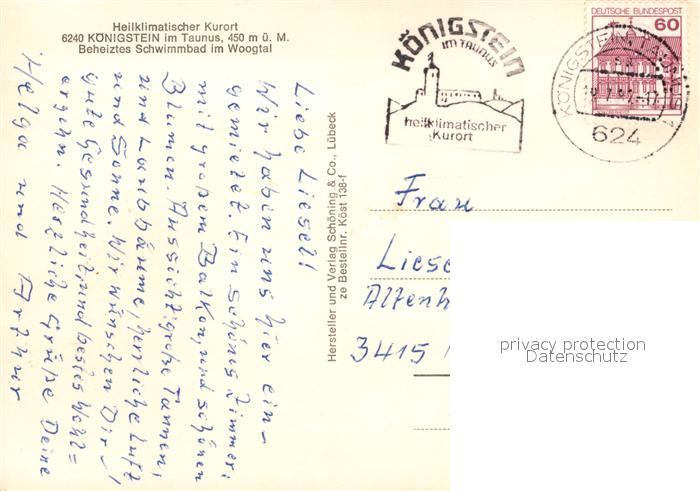 Heilklimatischer Kurort
6240 KÖNIGSTEIN im Taunus, 450 m ü. M.
Beheiztes Schwimmbad im Woogtal
Liebe Liesel!
Wir haben uns hier ein-
gemietet. Ein schönes Zimmer,
mit großem Balkon, und schönen
Blumen. Aussicht: große Tannen,
und Laubbäume, herrliche Luft
und Sonne. Wir wünschen Dir
gute Gesundheit, und bestes Wohl=
ergehn. Herzliche Grüße Deine
Helga und Arthur
Hersteller und Verlag Schöning & Co., Lübeck
ze Bestellnr. Köst 138-f
KÖNIGSTEIN
IM TAUNUS
heilklimatischer
Kurort
DEUTSCHE BUNDESPOST
60
KÖNIGSTEIN, TAUNUS 1
624
Frau
Liese
Altenh
3415
privacy protection
Datenschutz